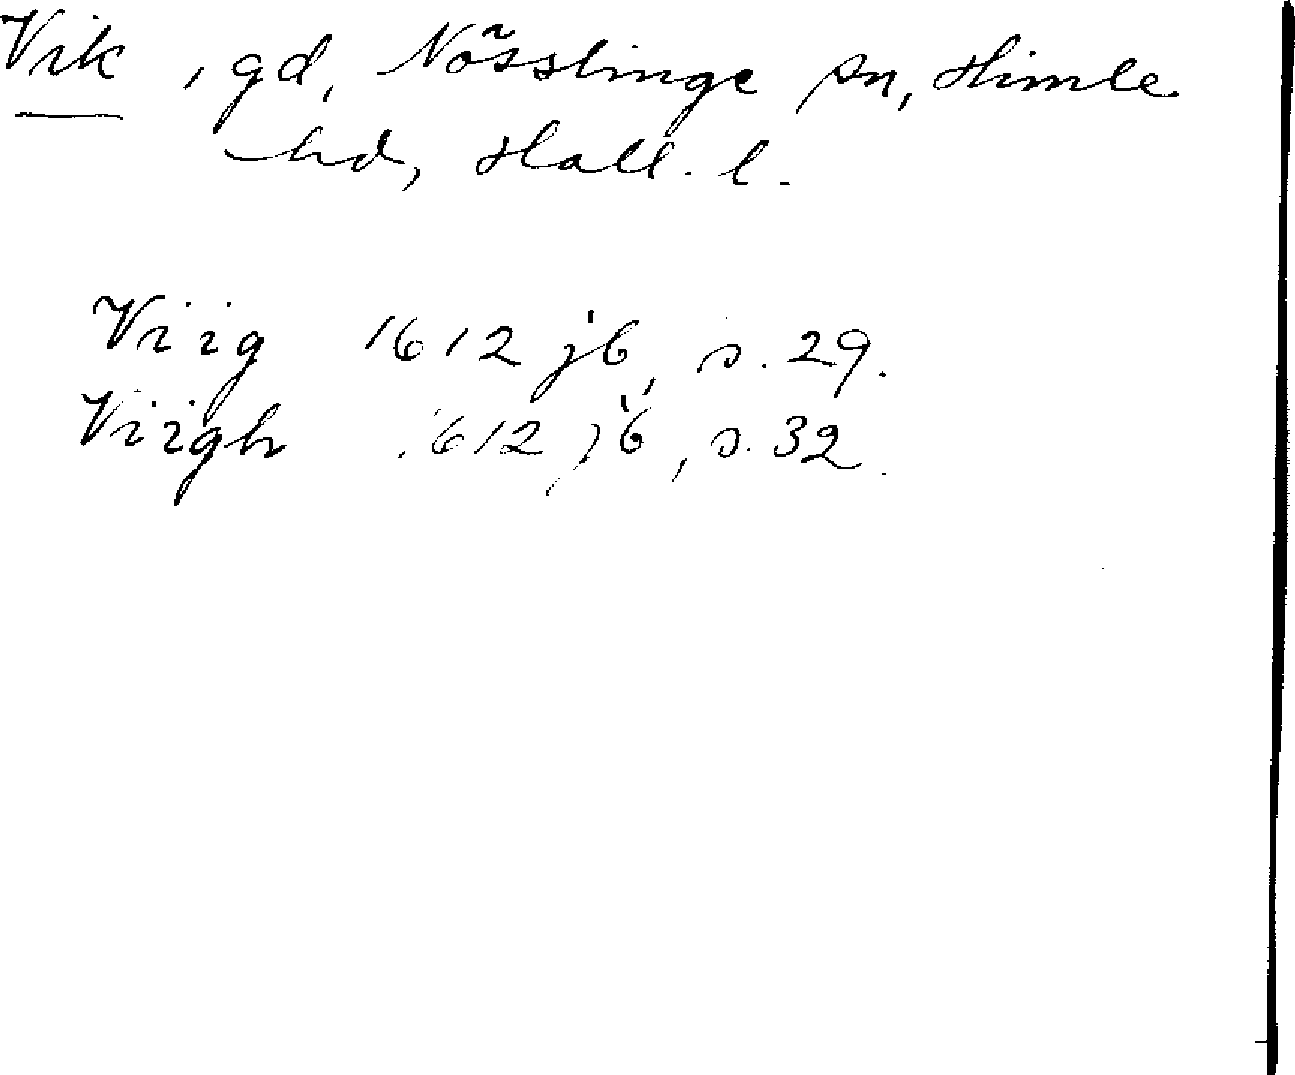 Vik, gd, Nösslinge sn, Himle
hd, Hall. l.
Viig 1612 jb, s. 29.
Viigh 1612 jb, s. 32.